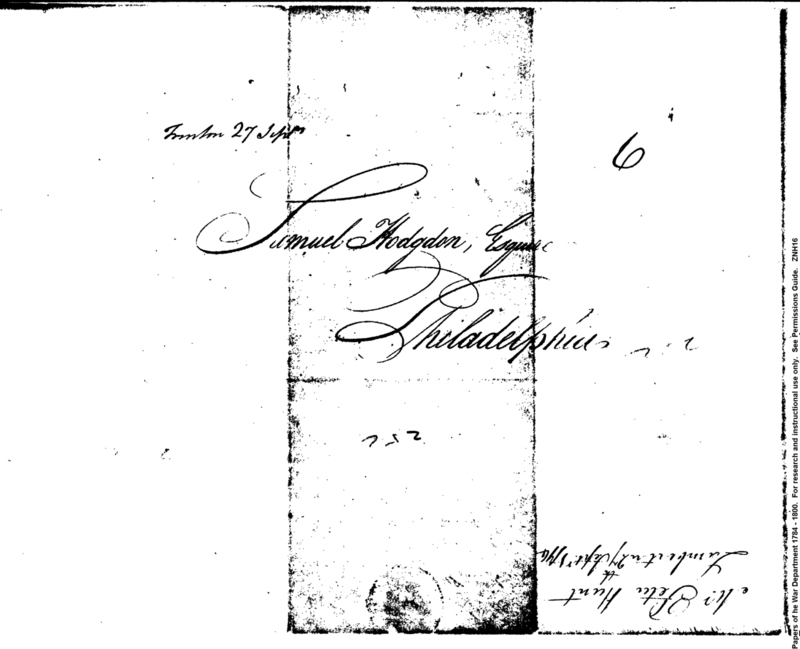 Trenton 27 Sept
6
Samuel Hodgdon, Esquire
Philadelphia
252
Mr. Peter Hunt
Lamberton 27th Sept. 1796
Papers of he War Department 1784 - 1800. For research and instructional use only. See Permissions Guide. ZNH16